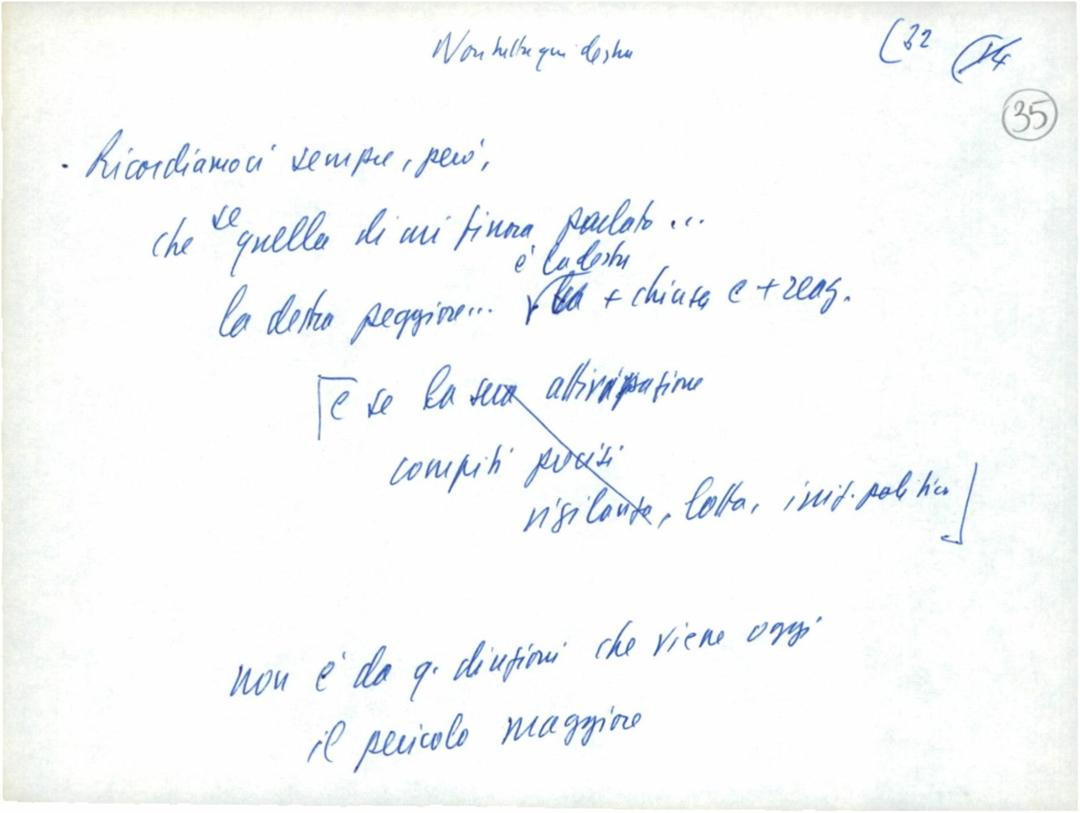 Non tutta qui destra
(32 (14
35
· Ricordiamoci sempre, però,
che se quella di cui finora parlato...
la destra peggiore... è la destra + chiusa e + reaz.
[e se la sua
compiti precisi
vigilanza, lotta, iniz. politica]
non è da q. direzioni che viene oggi
il pericolo maggiore